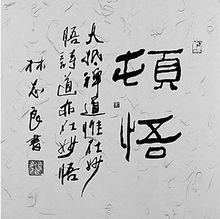 頓悟
大抵禪道惟在妙
悟詩道亦在妙悟
林志良書